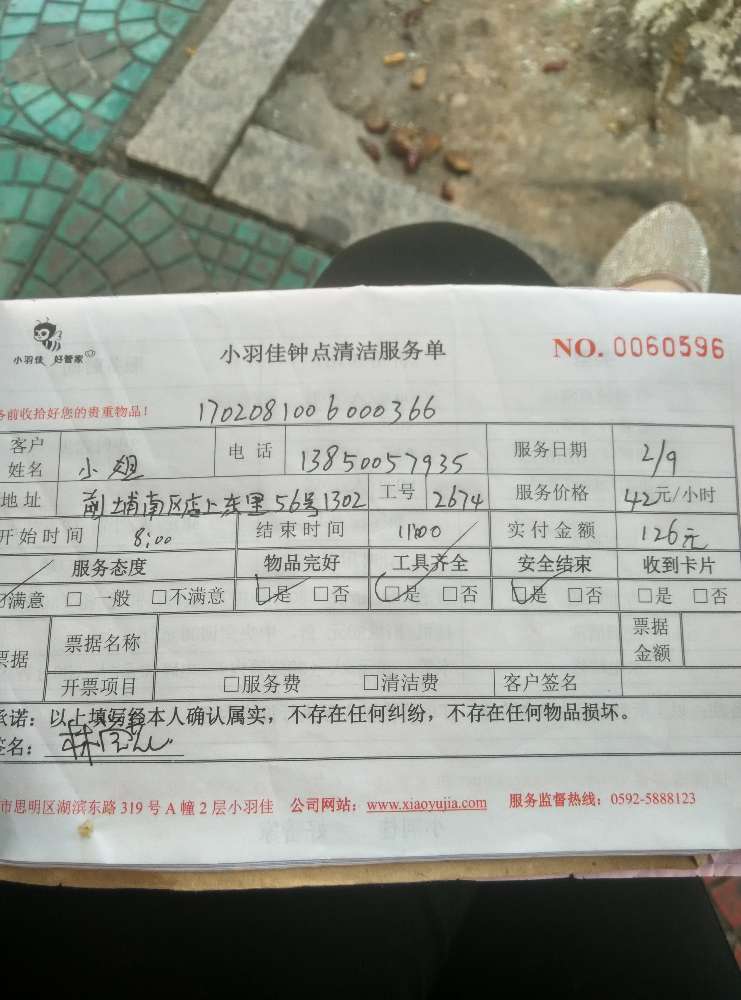 小羽佳 好管家
小羽佳钟点清洁服务单
NO. 0060596
务前收拾好您的贵重物品！
1702081006000366
客户姓名 小姐 电话 13850057935 服务日期 2/9
地址 莆埔南区店上东里56号1302 工号 2674 服务价格 42元/小时
开始时间 8:00 结束时间 11:00 实付金额 126元
服务态度 物品完好 工具齐全 安全结束 收到卡片
满意 □ 一般 □不满意 □是 □否 □是 □否 □是 □否 □是 □否
票据 票据名称 票据金额
开票项目 □服务费 □清洁费 客户签名
承诺：以上填写经本人确认属实，不存在任何纠纷，不存在任何物品损坏。
签名：
市思明区湖滨东路 319 号 A 幢 2 层小羽佳 公司网站：www.xiaoyujia.com 服务监督热线：0592-5888123